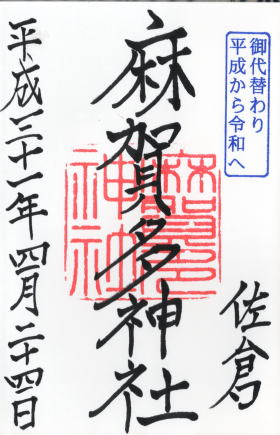 御代替わり
平成から令和へ
佐倉
麻賀多神社
平成三十一年四月二十四日